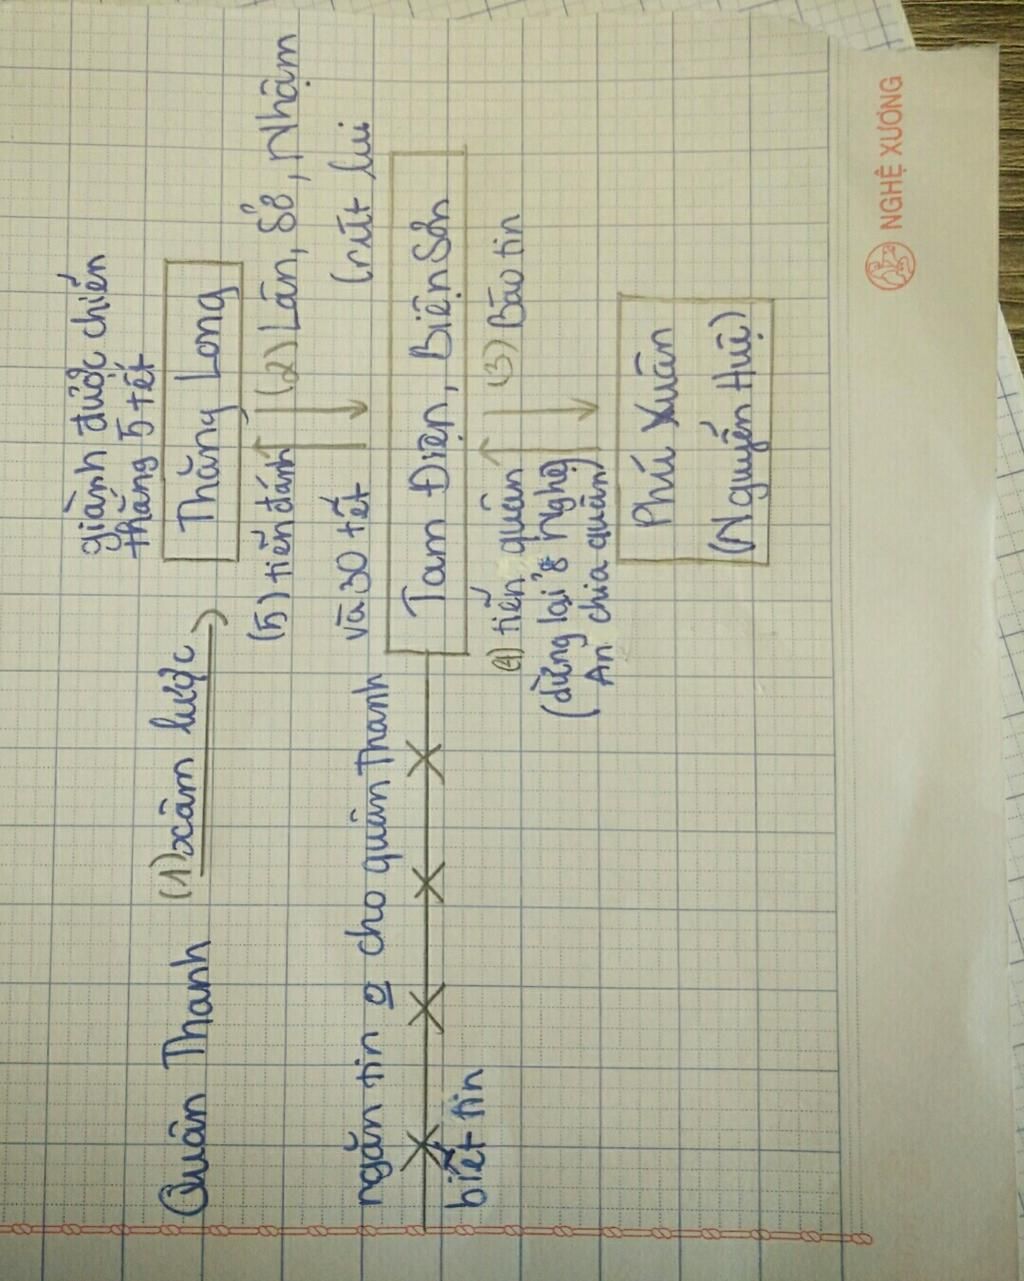 giành được chiến
thắng 5 tết
Quân Thanh
(1) xâm lược
Thăng Long
(5) tiến đánh
và 30 tết
(2) Lân, Sở, Nhậm
(rút lui
ngăn tin o cho quân Thanh
biết tin
Tam Điện, Biện Sơn
(4) tiến quân
(dừng lại ở Nghệ
An chia quân)
(3) Báo tin
Phú Xuân
(Nguyễn Huệ)
NGHỆ XƯƠNG